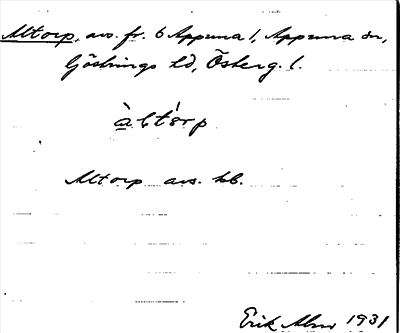 Altorp, avs. fr. 6 Appuna 1, Appuna sn,
Göstrings hd, Österg. l.
àltórp
Altorp avs. hb.
Erik Alm 1931